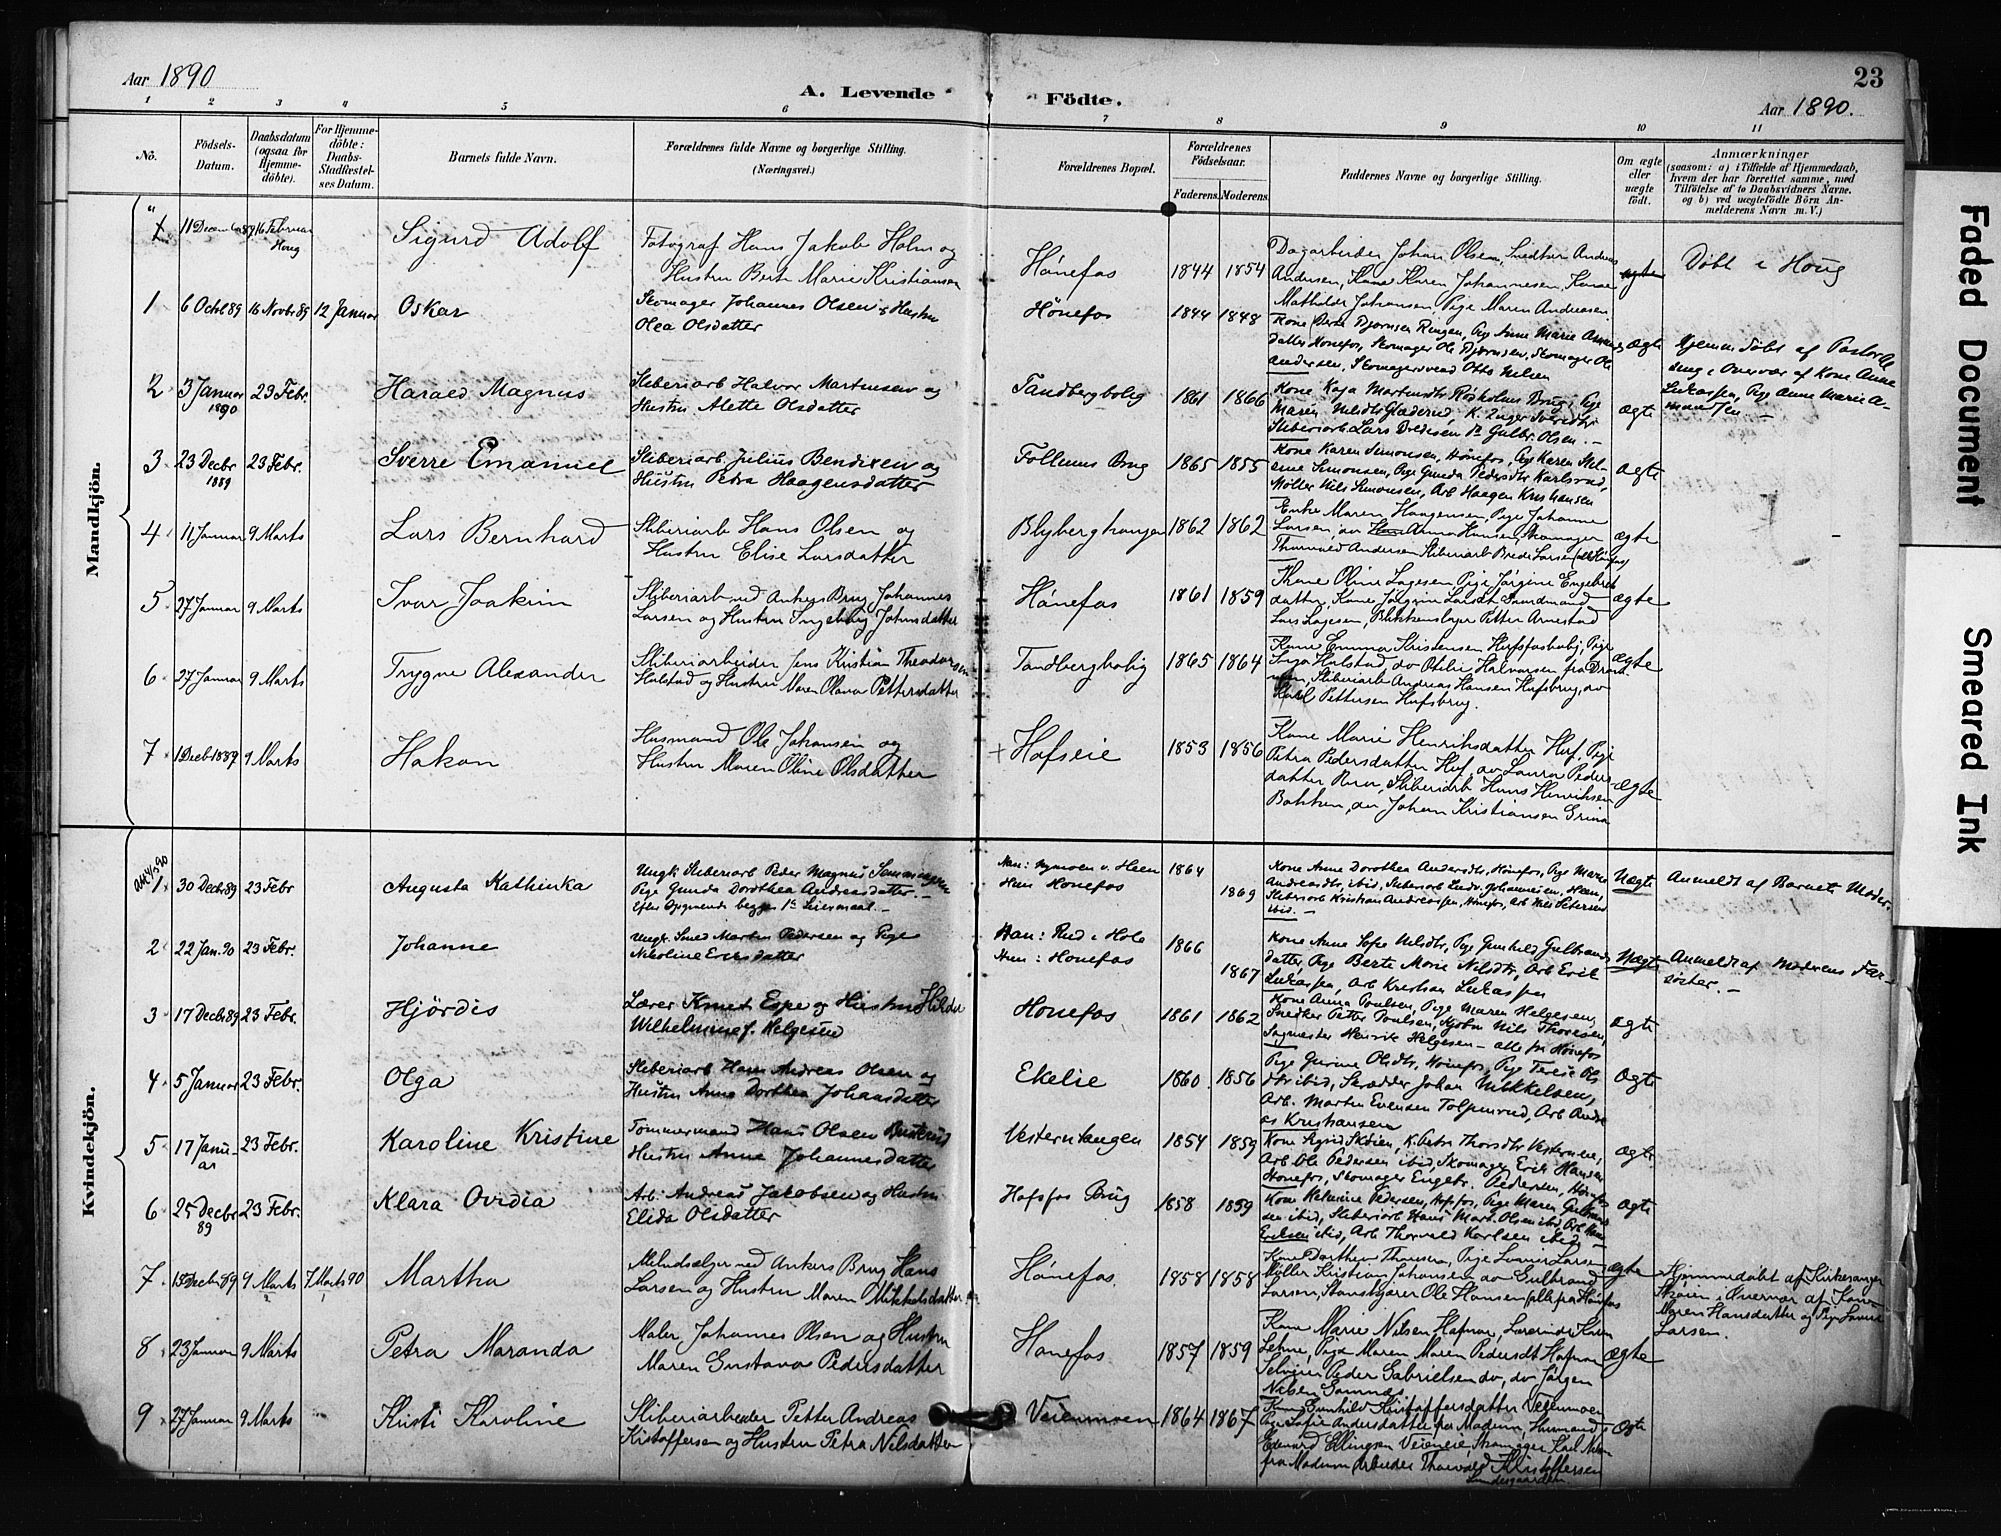 Aar 1890
A. Levende Födte.
23
Aar 1890.
1 2 3 4 5 6 7 8 9 10 11
No.
Födsels-Datum.
Daabsdatum (ogsaa for Hjemme-döbte).
For Hjemme-döbte: Daabs-Stadfæstel-ses Datum.
Barnets fulde Navn.
Forældrenes fulde Navne og borgerlige Stilling. (Næringsvei.)
Forældrenes Bopæl.
Forældrenes Födselsaar.
Faderens. Moderens.
Faddernes Navne og borgerlige Stilling.
Om ægte eller uægte födt.
Anmærkninger
(saasom: a) i Tilfælde af Hjemmedaab,
hvem der har forrettet samme, med
Tilföielse af to Daabsvidners Navne.
og b) ved uægtefödte Börn An-
melderens Navn m. V.)
Mandkjön.
1 11 Decemb 89 16 Februar Houg
Sigurd Adolf
Fotograf Hans Jakob Holm og
Hustru Berte Marie Kristiansen
Hönefos 1844 1854
Dagarbeider Johan Olsen, Snedker Anders
Andersen, Kone Karen Johannesen, Kone
Mathilde Johansen, Pige Maren Andresen
ægte
Döbt i Houg
1 6 Octb 89 16 Novbr 89 12 Januar
Oskar
Skomager Johannes Olsen og Hustru
Olea Olsdatter
Hönefos 1844 1848
datter Honefos, Skomager Ole Bjørnsen, Skomager Ole
Andersen, Skomagersvend Otto Nilsen
ægte
Hjemmedöbt af Pastor
i Overvær af Kone Anne
Lukassen, Pige Anne Marie A-
2 3 Januar 1890 23 Febr.
Harald Magnus
Sliberiarb Halvor Martinsen og
Hustru Alette Olsdatter
Tandbergbolig 1861 1866
Kone Kaja Martinsdtr Røsholm Brug, Pige
ægte
3 23 Decbr 1889 23 Febr.
Sverre Emanuel
Sliberiarb. Julius Bendixen og
Hustru Petra Haagensdatter
Follums Brug 1865 1855
Kone Karen Simonsen, Hönefos, Pige Karen Hel-
ene Simonsen, Pige Gunda Pedersdtr Karlsrud,
Möller Nils Simonsen, Arb Haagen Kristiansen
ægte
4 11 Januar 9 Marts
Lars Bernhard
Sliberiarb Hans Olsen og
Hustru Elise Larsdatter
Blyberghaugen 1862 1862
Enke Maren Haagensen, Pige Johanne
Larsen, do Anna Hansen, Skomager
Thorvald Andersen Sliberiarb Brede Larsen
ægte
5 27 Januar 9 Marts
Ivar Joakim
Sliberiarb ved Ankers Brug Johannes
Larsen og Hustru Ingeborg Johnsdatter
Hönefos 1861 1859
Kone Oline Lagesen Pige Jörgine Engebret
datter, Kone Jörgine Larsdt
Lars Lagesen, Blikkenslager Petter Arnestad
ægte
6 27 Januar 9 Marts
Trygve Alexander
Sliberiarbeider Jens Kristian Theodorsen
Hulstad og Hustru Maren Olava Pettersdatter
Tandbergbolig 1865 1864
Kone Emma Kristensen Hofsfosbolig, Pige
Inga Hulstad, do Otilie Halvorsen fra Dram
men, Sliberiarb Andreas Hansen Hofsbrug, do
Karl Pettersen Hofsbrug.
ægte
7 1 Decb 1889 9 Marts
Hakon
Husmand Ole Johansen og
Hustru Maren Oline Olsdatter
+ Hofseie 1853 1856
Kone Marie Henriksdatter Hof, Pige
Petra Pedersdatter Hof, do Laura Peders-
datter, Sliberiarb Hans Henriksen
Bakken, do Johan Kristiansen
ægte
Kvindekjön.
1 30 Decbr 89 23 Febr
Augusta Kathinka
Ungk Sliberiarb Peder Magnus
Pige Gunda Dorothea Andreasdatter. –
Efter Opgivende begges 1ste Leiermaal. –
Han: Nymoen v. Heen
Hun Honefos
1864
1869
Kone Anne Dorothea Andersdtr, Hönefos, Pige Maren
Andreasdtr, ibid, Sliberiarb Ludv. Johannesen, Heen,
Sliberiarb Kristian Andreassen, Hönefos, Arb Nils Petersen
ibid. –
Uægte
Anmeldt af Barnets Moder.
2 22 Jan. 90 23 Febr.
Johanne
Ungk. Smed Martin Pedersen og Pige
Nikoline Eriksdatter
Han: Rud i Hole
Hun: Honefos
1866
1867
Kone Anne Sofie Nilsdtr, Pige Gunhild Gulbrands
datter, Pige Berte Marie Nilsdtr, Arb Erik
Lukassen, Arb Kristian Lukassen
Uægte
Anmeldt af Moderens Far-
söster. –
3 17 Decbr 89 23 Febr.
Hjördis
Lærer Knut Espe og Hustru Hilda
Wilhelmine f. Helgesen
Honefos 1861 1862
Kone Anna Poulsen, Pige Maren Helgesen,
Snedker Petter Poulsen, Kjøbm Nils Thoresen,
Sagmester Henrik Helgesen – alle fra Honefos
ægte
4 5 Januar 23 Febr.
Olga
Sliberiarb Hans Andreas Olsen og
Hustru Anne Dorthea Johansdatter
Ekelie 1860. 1856
Pige Gurine Olsdtr, Hönefos, Pige Terese Ols
dtr ibid, Skrædder Johan Mikkelsen,
Arb. Martin Evensen Tolpinrud, Arb Andre
as Kristiansen
ægte
5 17 Janu-ar 23 Febr.
Karoline Kristine
Tömmermand Hans Olsen
Hustru Anne Johannesdatter
Vesterntangen 1854 1859
Kone Sigrid Skøien, K. Petra Thorsdtr
Arb Ole Pedersen ibid, Skomager Erik Hansen
Honefos, Skomager Engebr. Pedersen, Hönefos
ægte.
6 25 Decbr 89 23 Febr.
Klara Ovidia
Arb. Andreas Jakobsen og Hustru
Elida Olsdatter
Hofsfos Brug 1858 1859
Kone Katerine Pedersen, Hofsfos, Pige Maren Gulbrand
sen ibid, Sliberiarb Hans Mart. Olsen ibid, Arb
Eriksen ibid, Arb Thorvald Karlsen ibid –
ægte
7 15 Decbr 89 9 Marts 7 Marts 90
Martha
Meludsælger ved Ankers Brug Hans
Larsen og Hustru Maren Mikkelsdatter
Hönefos. 1858 1858
Kone Dorthea Thoresen, Pige Lovise Larsen
Möller Kristian Johansen do Gulbrand
Larsen, Ole Hansen alle fra Hönefos
ægte
Hjemmedöbt af Kirkesanger
Skøien i Overvær af Kone
Maren Hansdatter og Pige Lovise
Larsen.
8 23 Januar 9 Marts
Petra Maranda
Maler Johannes Olsen og Hustru
Maren Gustava Pedersdatter
Hönefos 1857 1859
Kone Marie Nilsen Hofmoe, Lærerinde Karen
Lehne, Pige Maren Maren Pedersdt Hofmoe
Selveier Peder Gabrielsen do, do Jörgen
Nilsen
ægte
9 27 Januar 9 Marts
Kristi Karoline
Sliberiarbeider Petter Andreas
Kristoffersen og Hustru Petra Nilsdatter
Veienmoen 1864 1867
Kone Gunhild Kristoffersdatter Veienmoen
Pige Sofie Andersdatter fra Modum, Husmand
Edvard Ellingsen Veieneie, Skomager Karl Nilsen
fra Modum, Arbeider Thorvald Kristoffersen
Lundesgaarden
ægte
Faded Document
Smeared Ink